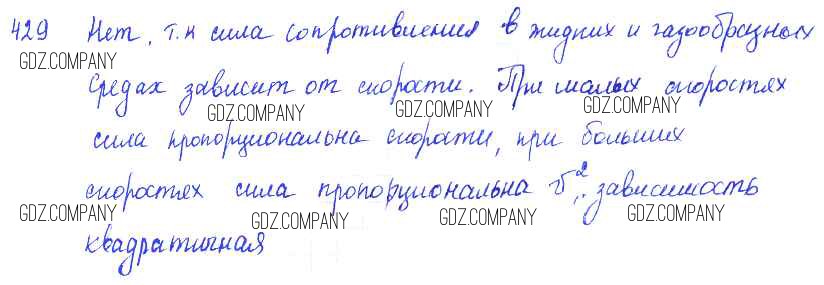 429 Нет, т.к сила сопротивления в жидких и газообразных
GDZ.COMPANY
средах зависит от скорости. При малых скоростях
GDZ.COMPANY GDZ.COMPANY GDZ.COMPANY
сила пропорциональна скорости, при больших
GDZ.COMPANY GDZ.COMPANY
скоростях сила пропорциональна υ², зависимость
GDZ.COMPANY GDZ.COMPANY GDZ.COMPANY GDZ.COMPANY
квадратичная